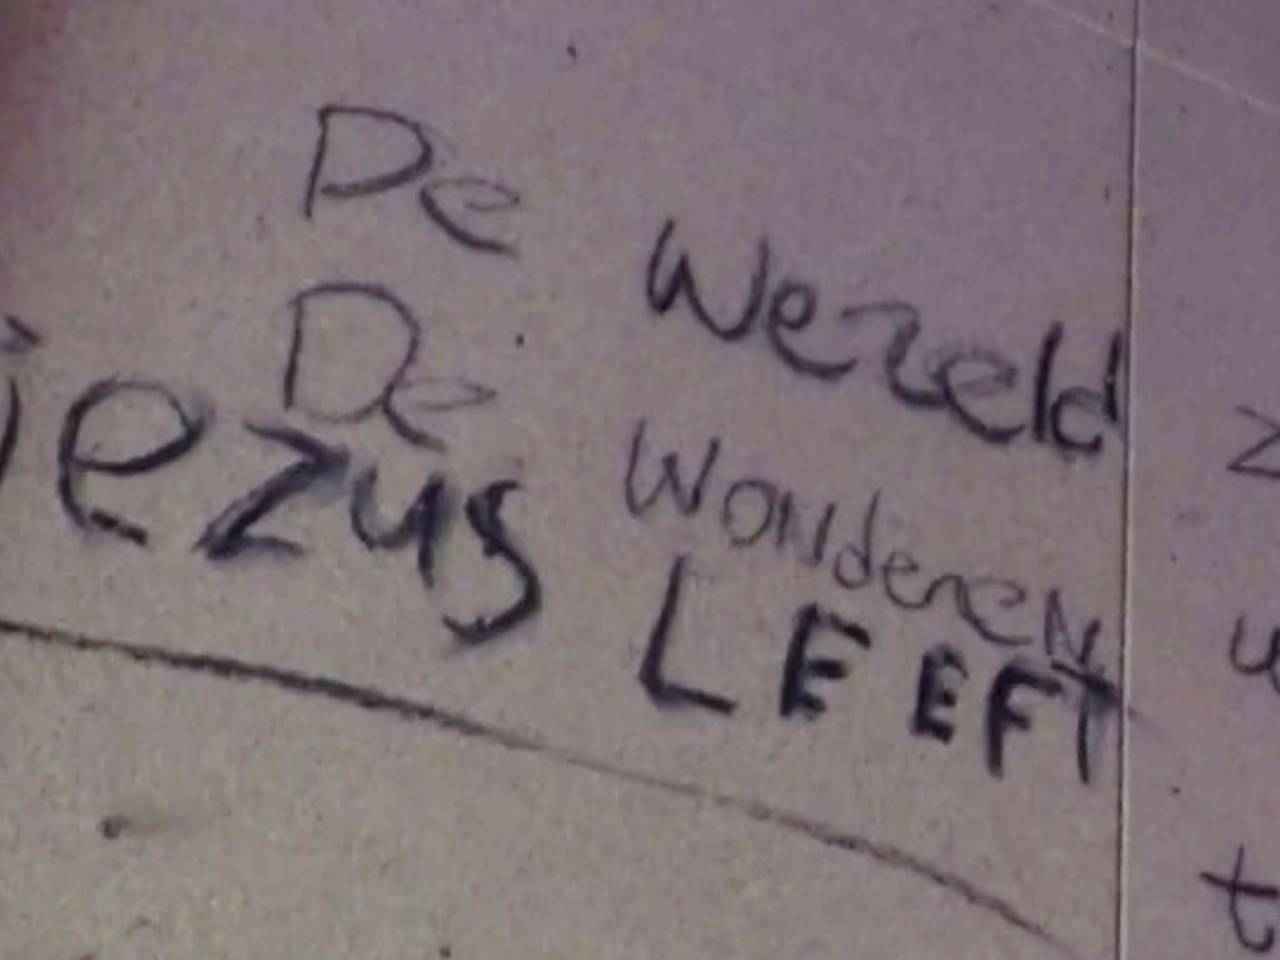 De wereld
De wonderen
jezus LEEFT